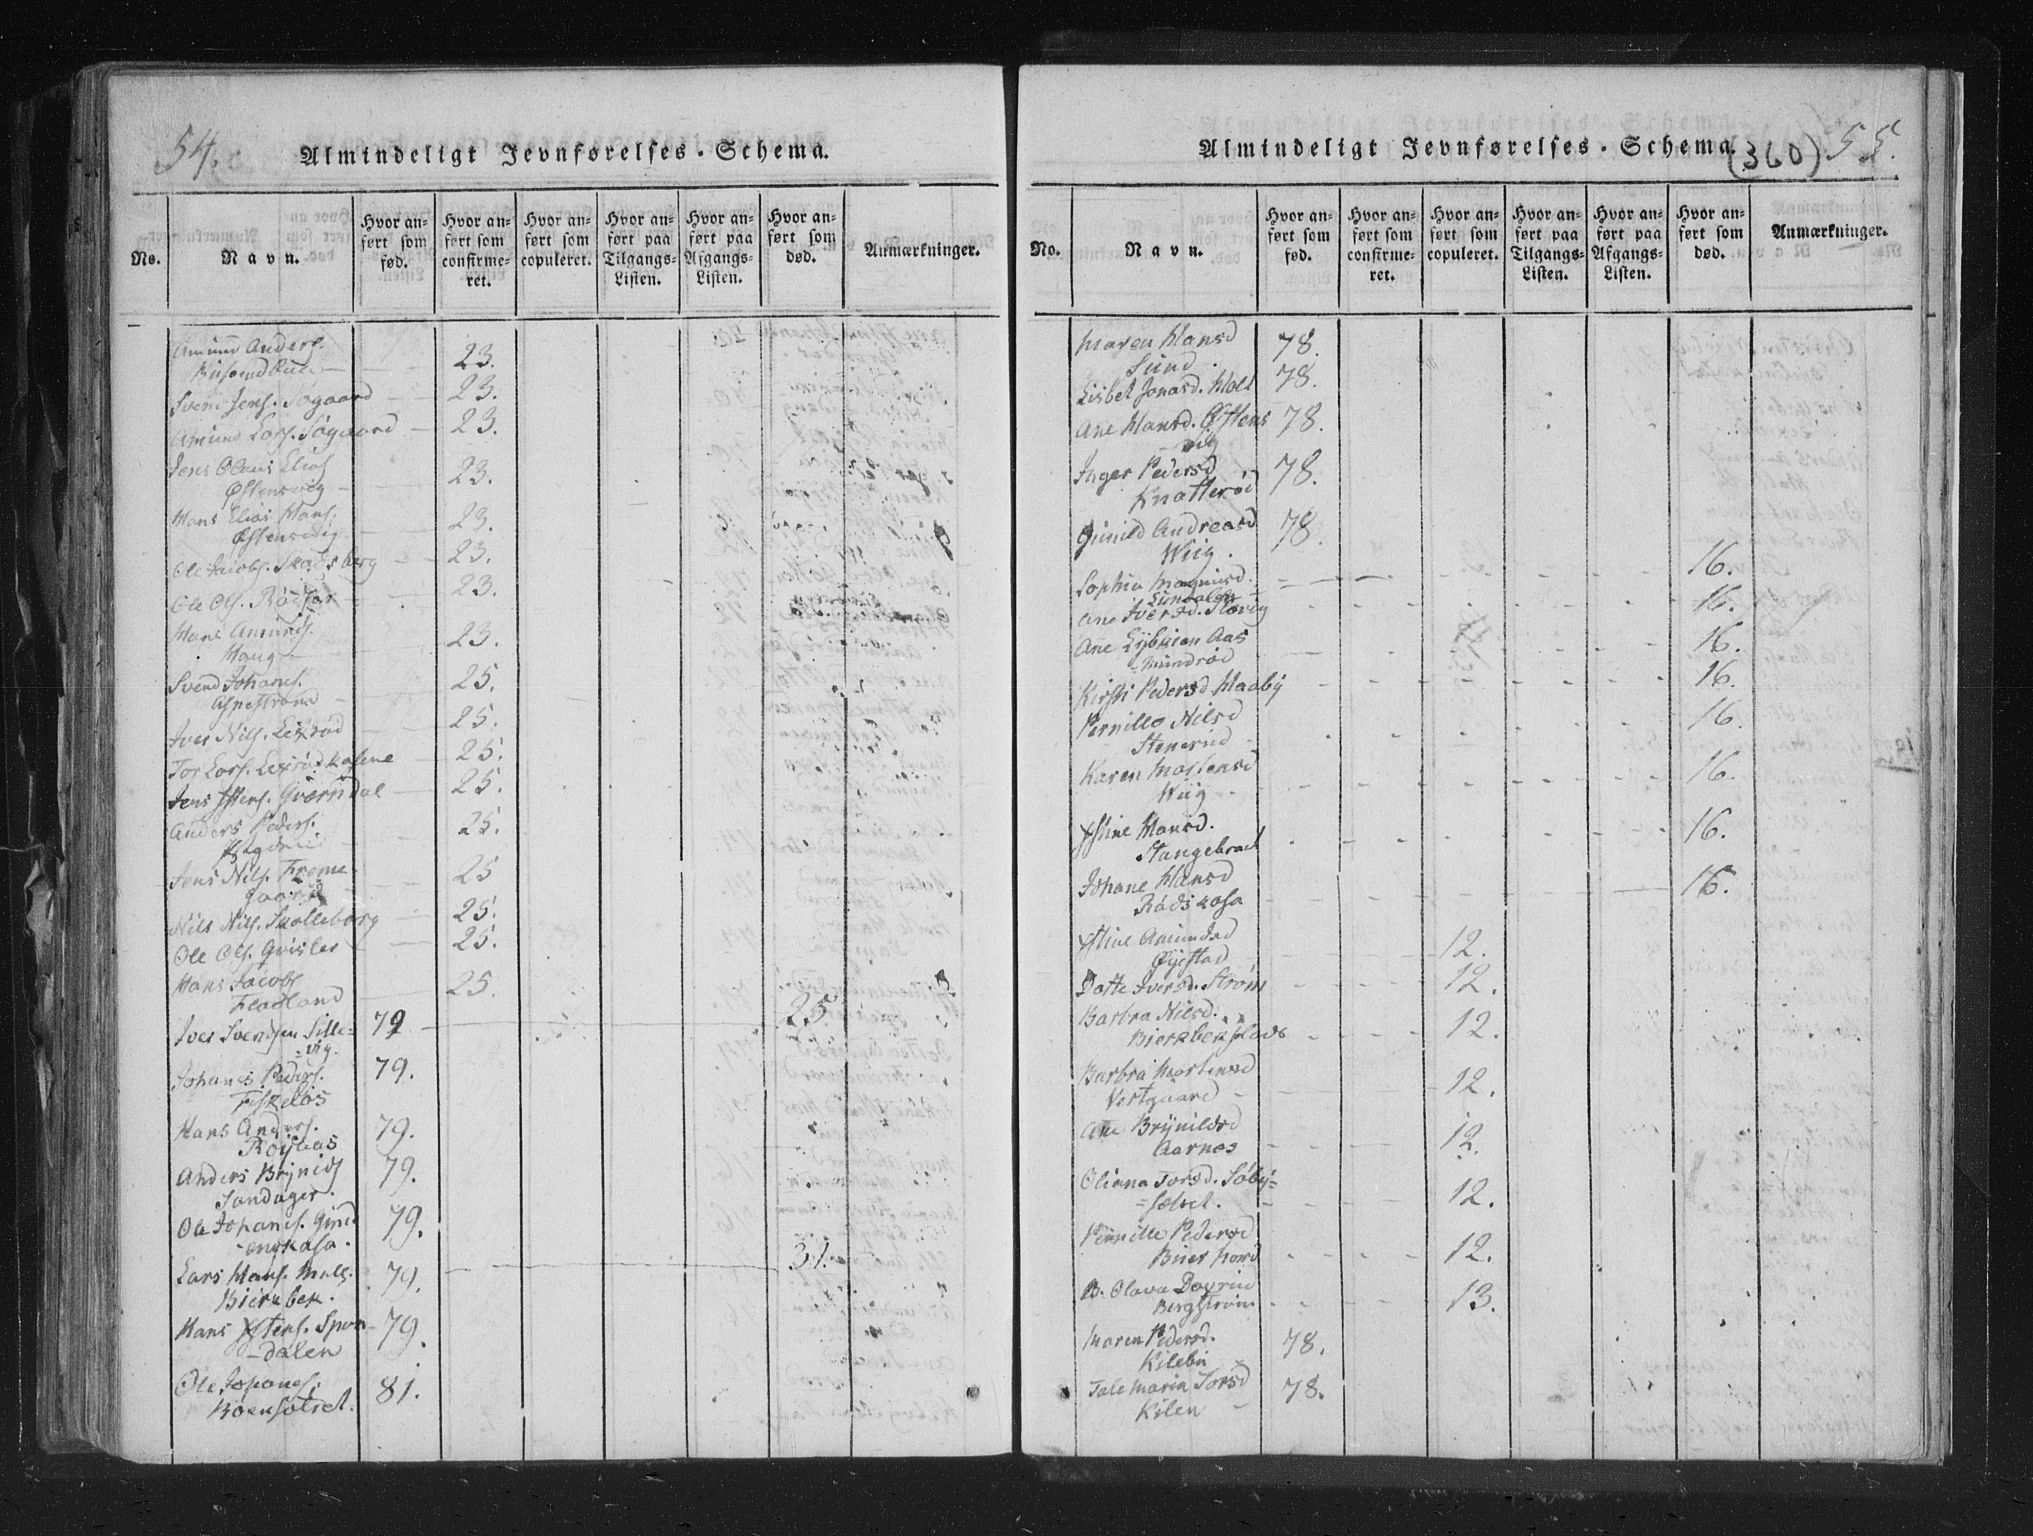 54.
Almindeligt Jevnførelses-Schema.
No.
Navn.
Hvor anført som fød.
Hvor anført som confirmeret.
Hvor anført som copuleret.
Hvor anført paa Tilgangs-Listen.
Hvor anført paa Afgangs-Listen.
Hvor anført som død.
Anmærkninger.
Amund Anders.
23.
Svend Jens. Søgaard 23.
Amund Lars. Søgaard 23.
Jens Olaus Elias
Østensvig 23.
Hans Elias Hans.
Østensvig 23.
Ole Jacobs. Skadsberg 23.
Ole Ols. 23.
Hans Amunds.
Haug 23.
Svend Johans.
25.
Iver Nils. Lexrød 25.
Tor Lars. Lexrødkasene 25.
Jens Gværndal 25.
Anders Peders.
25.
Jens Nils. Frome-
gaard 25
Nils Nils. Skolleborg 25.
Ole Ols. Grisler 25.
Hans Jacobs
Fladland 25.
Iver Svendsen Sille-
vig. 79 25
Johanes Peders. 79.
Fiskeløs
Hans Anders. 79.
Røijsaas
Anders Brynilds 79.
Sandager.
Ole Johanes. Gind- 79.
Lars Hans. 79. 31.
Bierkbek.
Hans Spon- 79.
-dalen
Ole Johanes. 81.
Bøensætret.
Almindeligt Jevnførelses-Schema.
(360) 55.
No.
Navn.
Hvor anført som fød.
Hvor anført som confirmeret.
Hvor anført som copuleret.
Hvor anført paa Tilgangs-Listen.
Hvor anført paa Afgangs-Listen.
Hvor anført som død.
Anmærkninger.
Maren Hansd 78.
Sund
Lisbet Jonasd. Holt 78.
Ane Hansd. Østens 78.
vig
Inger Pedersd 78.
Knatterød
Gunild Andreasd 78.
Wiig.
Sophia Magnusd. 16.
Ane Iversd. Sløvig 16.
Ane Aas
Mundrød 16.
Kirsti Pedersd Haaby 16.
Pernille Nilsd 16.
Stenerud
Karen Mortensd 16.
Wiig
Hansd. 16.
Stangebraat
Johane Hansd 16.
Rødskasa
Amundsd 12.
Øyestad
Dotte Iversd. Strøm 12.
Barbra Nilsd. 12.
Bierkbekplads
Barbra Mortensd 12.
Vestgaard
Ane Brynildsd 12.
Aarnes
Oliana Torsd. Søby-
sætret. 12.
Pernille Pedersd
Buer nord 12.
Olava
Bergstrøm 13.
Maren Pedersd. 78.
Kilebu
Tale Maria Torsd 78.
Kilen